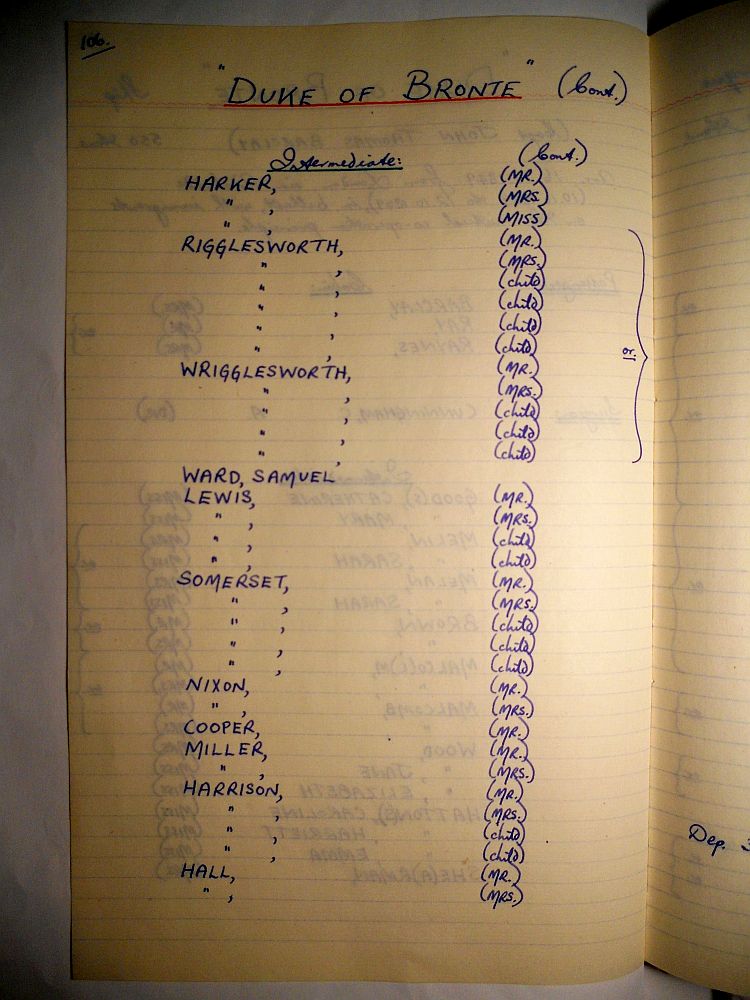 106.
"DUKE OF BRONTE" (Cont.)
Intermediate: (Cont.)
HARKER, (MR.)
" , (MRS.)
" , (MISS)
RIGGLESWORTH, (MR.)
" , (MRS.)
" , (child)
" , (child)
" , (child)
" , (child)
or.
WRIGGLESWORTH, (MR.)
" , (MRS.)
" , (child)
" , (child)
" , (child)
WARD, SAMUEL
LEWIS, (MR.)
" , (MRS.)
" , (child)
" , (child)
SOMERSET, (MR.)
" , (MRS.)
" , (child)
" , (child)
" , (child)
NIXON, (MR.)
" , (MRS.)
COOPER, (MR.)
MILLER, (MR.)
" , (MRS.)
HARRISON, (MR.)
" , (MRS.)
" , (child)
" , (child)
HALL, (MR.)
" , (MRS.)
Dep.